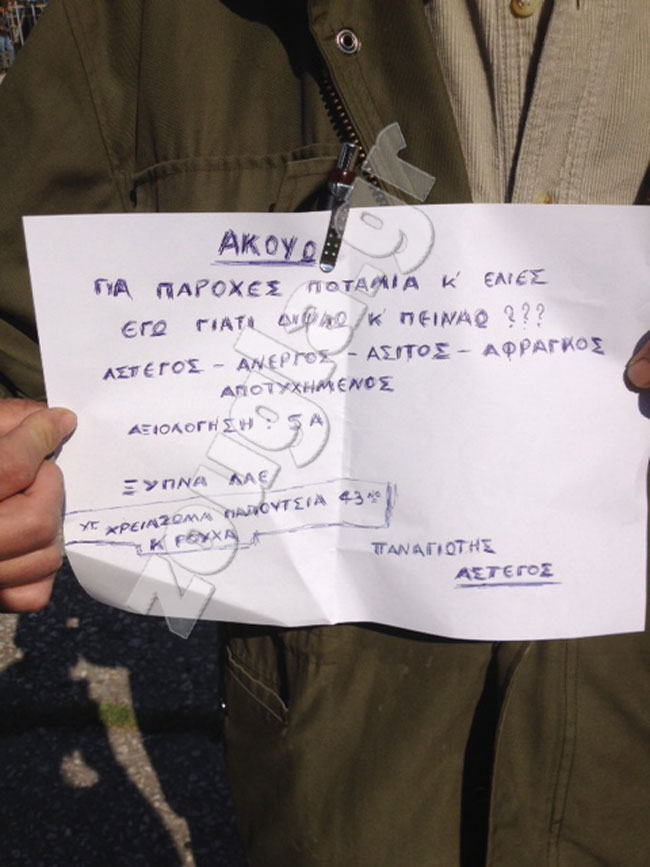 ΑΚΟΥΩ
ΓΙΑ ΠΑΡΟΧΕΣ ΠΟΤΑΜΙΑ Κ' ΕΛΙΕΣ
ΕΓΩ ΓΙΑΤΙ ΔΙΨΑΩ Κ' ΠΕΙΝΑΩ ???
ΑΣΤΕΓΟΣ - ΑΝΕΡΓΟΣ - ΑΣΙΤΟΣ - ΑΦΡΑΓΚΟΣ
ΑΠΟΤΥΧΗΜΕΝΟΣ
ΑΞΙΟΛΟΓΗΣΗ : 5 Α
ΞΥΠΝΑ ΛΑΕ
ΥΓ ΧΡΕΙΑΖΟΜΑ ΠΑΠΟΥΤΣΙΑ 43 ΝΟ
Κ ΡΟΥΧΑ
ΠΑΝΑΓΙΩΤΗΣ
ΑΣΤΕΓΟΣ
zougla.gr